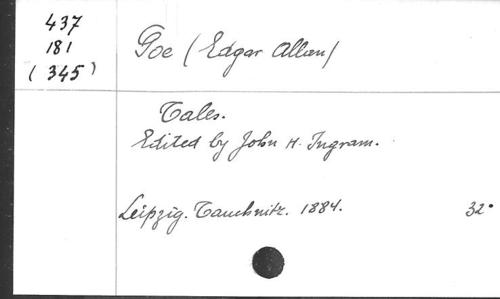 437
181
(345)
Poe (Edgar Allan)
Tales.
Edited by John H. Ingram.
Leipzig. Tauchnitz. 1884. 32°